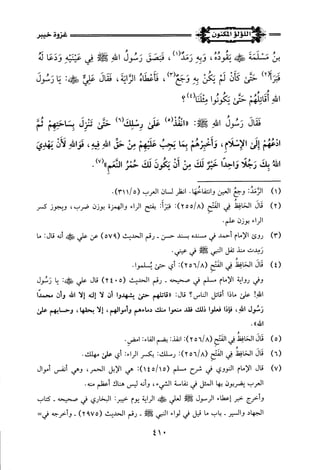 اللؤلؤ المكنون
غزوة خيبر
بن مسلمة ﷺ يقوده، وبه رمد(١)، فبصق رسول الله ﷺ في عينيه ودعا له
فبرأ(٢) حتى كأن لم يكن به وجع(٣)، فأعطاه الراية، فقال علي ﷺ: يا رسول
الله أقاتلهم حتى يكونوا مثلنا(٤)؟
فقال رسول الله ﷺ: «انفذ(٥) على رسلك(٦) حتى تنزل بساحتهم ثم
ادعهم إلى الإسلام، وأخبرهم بما يجب عليهم من حق الله فيه، فوالله لأن يهدي
الله بك رجلا واحدا خير لك من أن يكون لك حمر النعم»(٧).
(١) الرمد: وجع العين وانتفاخها. انظر لسان العرب (٣١١/٥).
(٢) قال الحافظ في الفتح (٢٥٥/٨): فبرأ: بفتح الراء والهمزة بوزن ضرب، ويجوز كسر
الراء بوزن علم.
(٣) روى الإمام أحمد في مسنده بسند حسن - رقم الحديث (٥٧٩) عن علي ﷺ أنه قال: ما
رمدت منذ تفل النبي ﷺ في عيني.
(٤) قال الحافظ في الفتح (٢٥٦/٨): أي حتى يسلموا.
وفي رواية الإمام مسلم في صحيحه - رقم الحديث (٢٤٠٥) قال علي ﷺ: يا رسول
الله! على ماذا أقاتل الناس؟ قال: «قاتلهم حتى يشهدوا أن لا إله إلا الله وأن محمدا
رسول الله، فإذا فعلوا ذلك فقد منعوا منك دماءهم وأموالهم، إلا بحقها، وحسابهم على
الله».
(٥) قال الحافظ في الفتح (٢٥٦/٨): انفذ: بضم الفاء: امض.
(٦) قال الحافظ في الفتح (٢٥٦/٨): رسلك: بكسر الراء: أي على مهلك.
(٧) قال الإمام النووي في شرح مسلم (١٤٥/١٥): هي الإبل الحمر، وهي أنفس أموال
العرب يضربون بها المثل في نفاسة الشيء، وأنه ليس هناك أعظم منه.
وأخرج خبر إعطاء الرسول ﷺ لعلي ﷺ الراية يوم خيبر: البخاري في صحيحه - كتاب
الجهاد والسير - باب ما قيل في لواء النبي ﷺ - رقم الحديث (٢٩٧٥) - وأخرجه في=
٤١٠